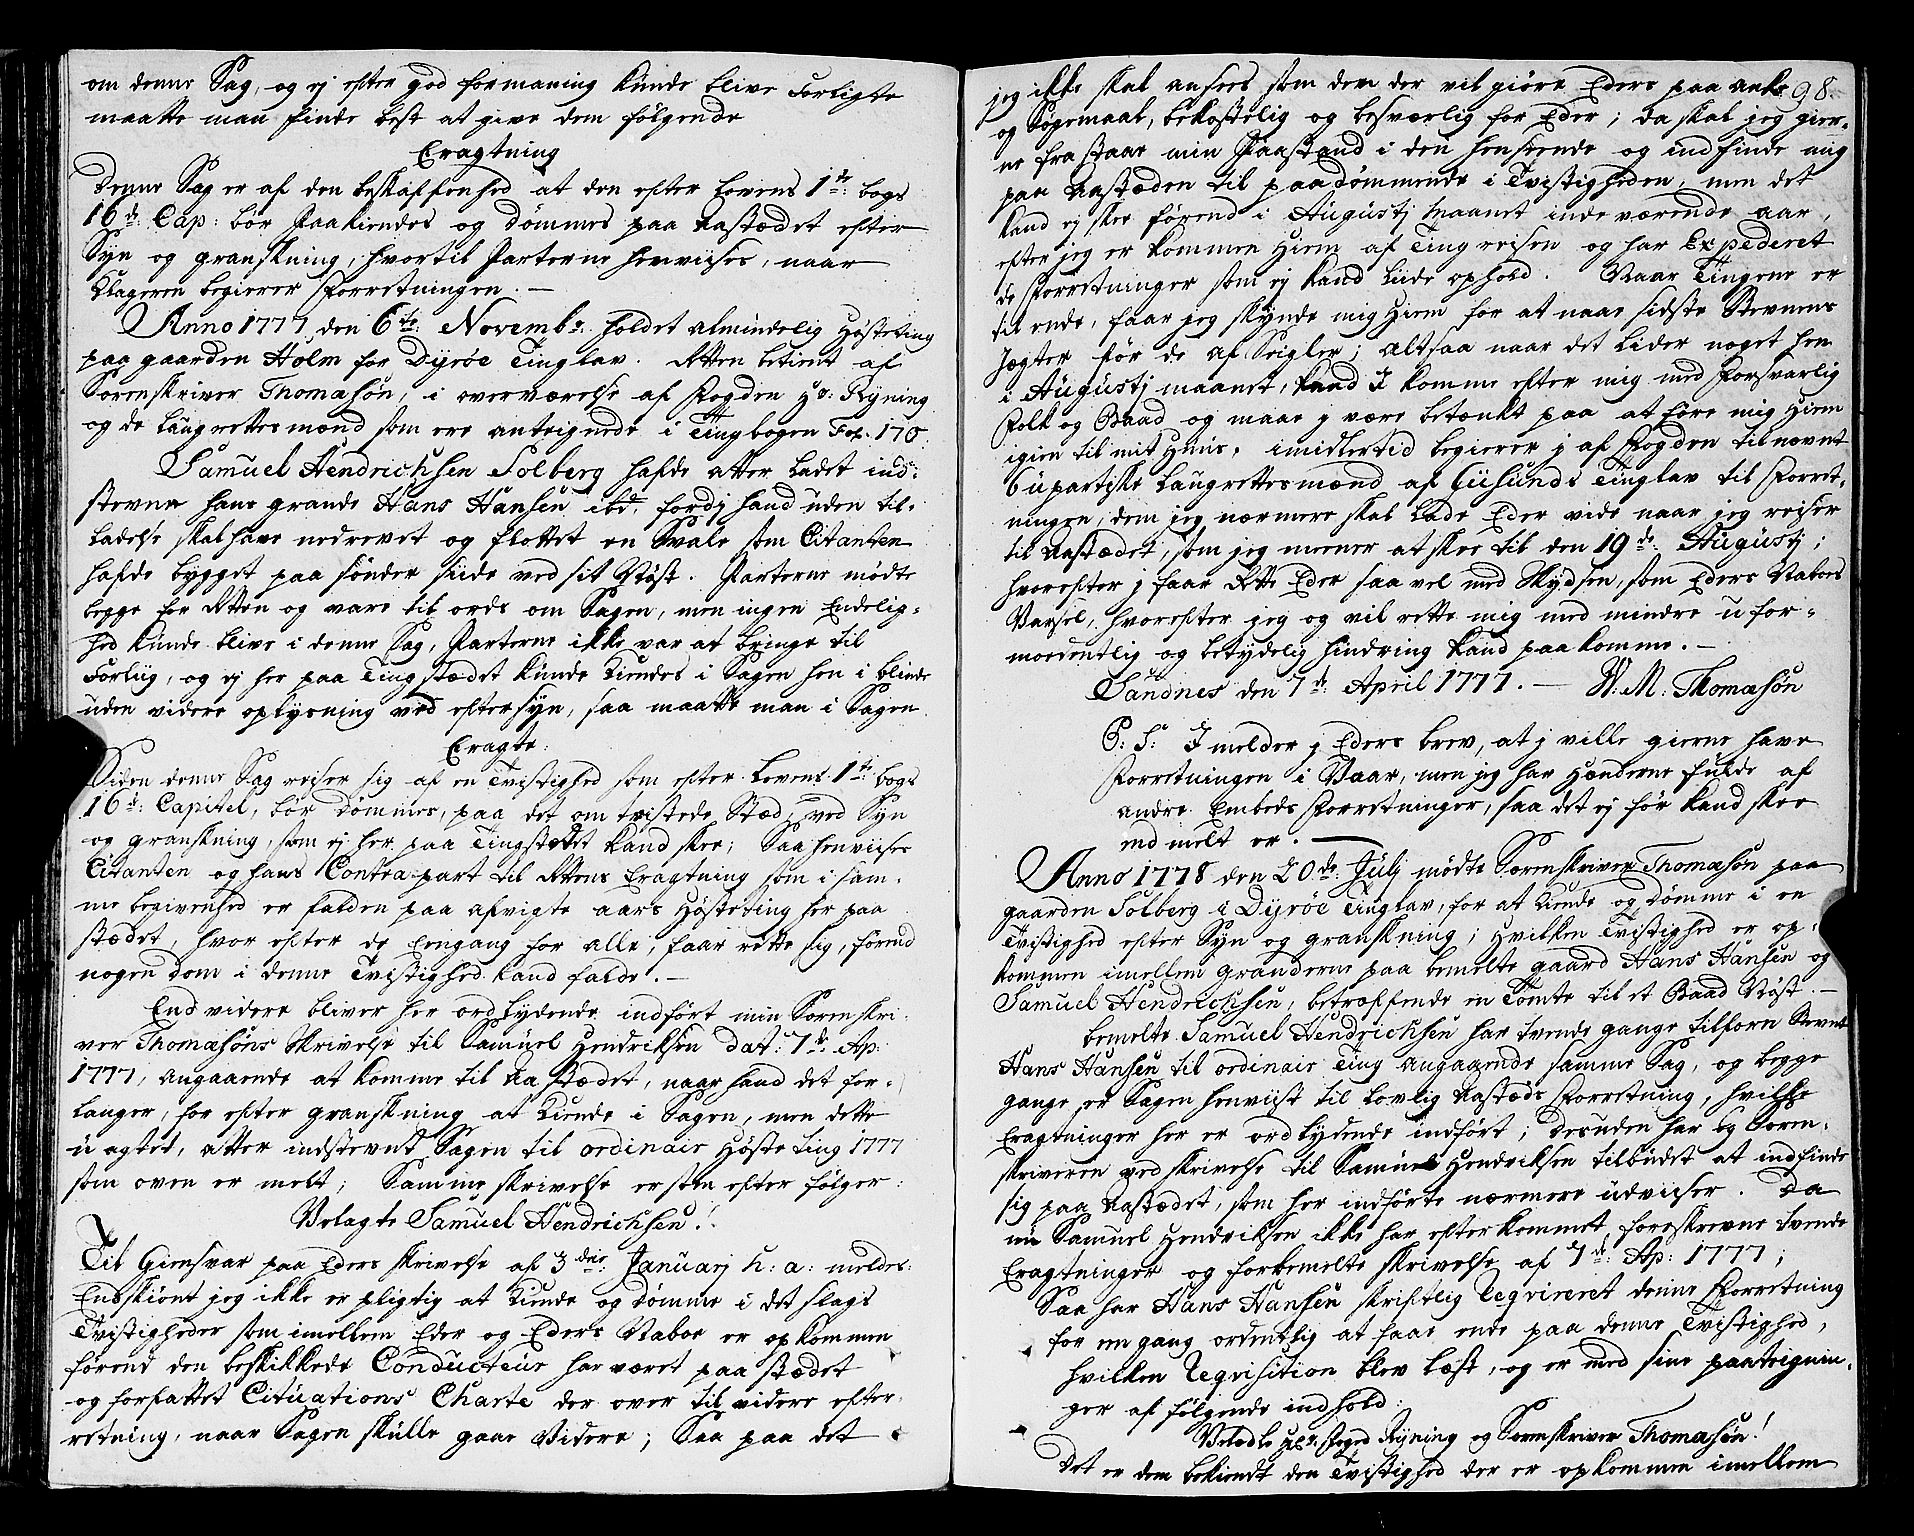 om denne Sag, og ej efter god formaning kunde blive Forligte
maatte man finde best at give dem følgende
Eragtning
Denne Sag er af den beskaffenhed at den efter Lovens 1te bogs
16de Cap: bør Paakiendes og dømmes paa Aastædet efter
Syn og granskning, hvortil Parterne henviises, naar
Klageren begierer Forretningen. —
Anno 1777 den 6te Novembr: holdet almindelig Høsteting
paa gaarden Holm for Dyrøe Tinglav. Retten betient af
Sorenskriver Thomæsøn, i overværelse af Fogden Hr: Ryning
og de Laugrettesmænd som ere antegnede i Tingbogen Fol. 170.
Samuel Hendrichsen Solberg hafde atter ladet ind-
stevne hans grande Hans Hansen ibd: fordj hand uden til-
ladelse skal have nedrevet og flottet en Svale som Citanten
hafde bygget paa sønder siide ved sit Nøst. Parterne mødte
begge for Retten og vare til ords om Sagen, men ingen Endelig-
hed kunde blive i denne Sag, Parterne ikke var at bringe til
Forliig, og ej her paa Tingstædet kunde kiendes i Sagen hen i blinde
uden videre oplysning ved eftersyn, saa maatte man i Sagen
Eragte:
Siden denne Sag reiser sig af en Tvistighed som efter Lovens 1te bogs
16de Capitel, bør dømmes, paa det om tvistede Stæd, ved Syn
og granskning, som ej her paa Tingstædet kand skee; Saa henviises
Citanten og hans Contrapart til Rettens Eragtning som i sam-
me begivenhed er falden paa afvigte aars Høsteting her paa
stædet, hvor efter de Eengang for alle, faar rette sig, førend
nogen dom i denne Tvistighed kand falde. —
End videre bliver her ordlydende indført min Sorenskri-
ver Thomæsøns Skrivelse til Samuel Hendriksen dat: 7de Ap:
1777, angaaende at komme til Aastædet, naar hand det for-
langer, for efter granskning at kiende i Sagen, men dette
uagtet, atter indstevnt Sagen til ordinair Høste ting 1777
som oven er melt; Samme skrivelse er som efter følger:
Velagte Samuel Hendrichsen!
Til Giensvar paa Eders skrivelse af 3die Januarj h: a: meldes:
Endskiønt jeg ikke er pligtig at kiende og dømme i det slags
Tvistigheder som imellem Eder og Eders Naboe er opkommen
førend den beskikkede Conducteur har været paa stædet
og forfattet Cituations Charte der over til videre efter-
retning, naar Sagen skulle gaae Videre; Saa paa det
98.
jeg ikke skal ansees som den der vil giøre Eders paa anke
og Søgemaal, bekostelig og besværlig for Eder; da skal jeg gier-
ne frastaae min Paastand i den henseende og indfinde mig
paa Aastæden til paadømmende i Tvistigheden, men det
kand ej skee førend i Augustj Maanet indeværende aar,
efter jeg er kommen hiem af Tingreisen og har Expederet
de Forretninger som ej kand liide ophold. Naar Tingene er
til ende, faar jeg skynde mig hiem for at naae sidste Stevnens
Jægter før de af Seigler; altsaa naar det lider noget hen
i Augustj maanet, kand I komme efter mig med forsvarlig
Folk og Baad og maae j være betænkt paa at føre mig hiem
igien til mit huus, imidlertid begierer j af Fogden tilnævnt
6 upartiske Laugrettesmænd af Giisunds Tinglav til Forret-
ningen, dem jeg nærmere skal lade Eder vide naar jeg reiser
til Aastædet, som jeg meener at skee til den 19de Augustj;
hvorefter j faar Rette Eder saa vel med Skydsen, som Eders Naboes
Varsel, hvorefter jeg og vil rette mig med mindre ufor-
moedentlig og betydelig hindring kand paakomme. —
Sandnes den 7de April 1777. — W. M. Thomæsøn
P: S: I melder j Eders brev, at j ville gierne have
Forretningen i Vaar, men jeg har Hænderne fulde af
andre Embeds Forretninger, saa det ej før kand skee
end melt er. —
Anno 1778 den 20de Julj mødte Sorenskriver Thomæsøn paa
gaarden Solberg i Dyrøe Tinglav, for at kiende og dømme i en
Tvistighed efter Syn og granskning; hvilken Tvistighed er op-
kommen imellem granderne paa bemelte gaard Hans Hansen og
Samuel Hendrichsen, betræffende en Tomte til et Baad Nøst. —
bemelte Samuel Hendrichsen har tvende gange tilforn Stevnt
Hans Hansen til ordinair Ting angaaende samme Sag, og begge
gange er Sagen henviist til Lovlig Aastæds Forretning, hvilke
Eragtninger her er ordlydende indført; desuden har og Soren-
skriveren ved skrivelse til Samuel Hendriksen tilbudet at indfinde
sig paa Aastædet, som her indførte nærmere udviiser. Da
nu Samuel Hendriksen ikke har efterkommet foreskrevne tvende
Eragtninger og forbemelte skrivelse af 7de Ap: 1777;
Saa har Hans Hansen skriftlig Reqvireret denne Forretning
for en gang ordentlig at faae ende paa denne Tvistighed,
hvilken Reqvisition blev læst, og er med sine paategnin-
ger af følgende indhold:
Velædle Hr: Foged Ryning og Sorenskriver Thomæsøn!
Det er dem bekiendt den Tvistighed der er opkommen imellem